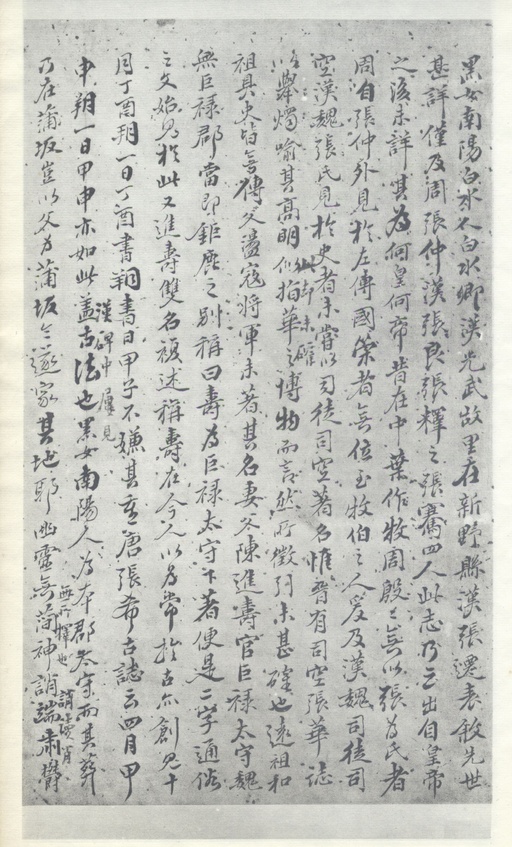 黑女南陽白水人白水鄉漢光武故里在新野縣漢張遷表敘先世
甚詳僅及周張仲漢張良張釋之張騫四人此志乃云出自皇帝
之後未詳其為何皇何帝昔在中葉作牧周殷々無以張為氏者
周自張仲外見於左傳國策者無位至牧伯之人爰及漢魏司徒司
空漢魏張氏見於史者未嘗以司徒司空著名惟晉有司空張華誌
以舉燭喻其高明似指華之博物而言然所徵引未甚確也遠祖和
祖具史皆無傳父盪寇將軍未著其名妻父陳進壽官巨祿太守魏
無巨祿郡當即鉅鹿之別稱曰壽為巨祿太守下著便是二字通俗
之文始見於此又進壽雙名複述稱壽在今人以為常於古亦創見十
月丁酉朔一日丁酉書朔書日甲子不嫌其重唐張希古誌云四月甲
漢碑中屢見
申朔一日甲申亦如此蓋古法也黑女南陽人為本郡太守而其葬
乃在蒲坂豈以父為蒲坂令遂家其地耶幽靈無簡神誚端肅鬱